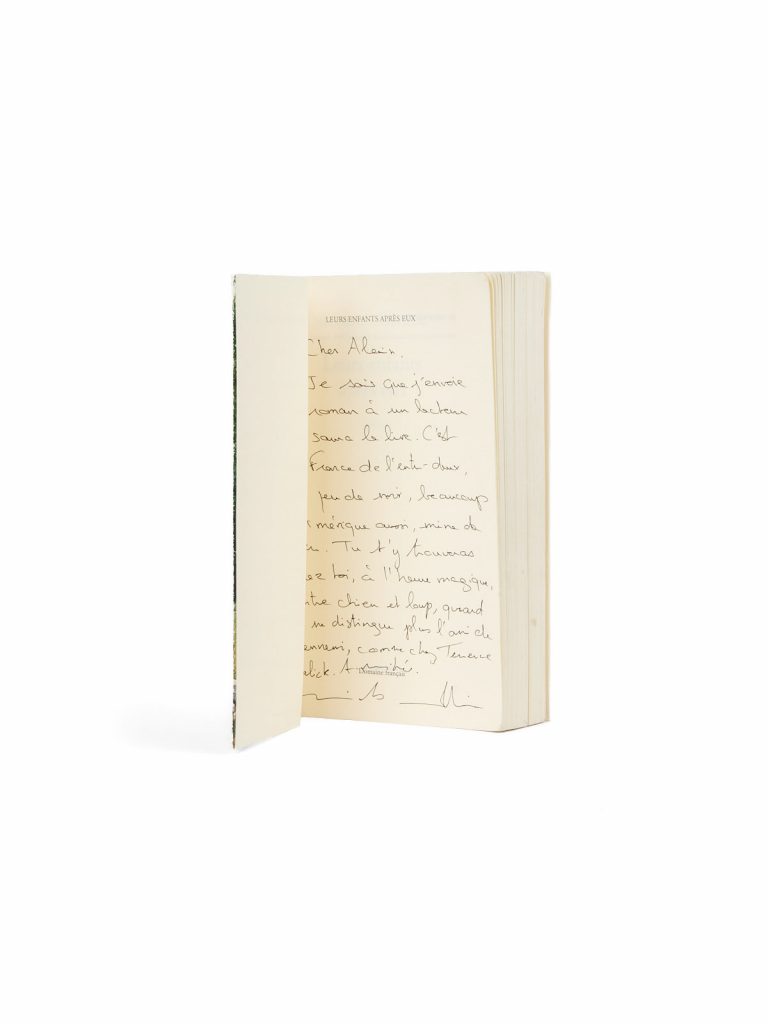 LEURS ENFANTS APRÈS EUX
Cher Alain,
Je sais que j'envoie
roman à un lecteur
saura le lire. C'est
France de l'entre-deux,
peu de noir, beaucoup
mérique aussi, mine de
Tu t'y trouveras
ez toi, à l'heure magique,
ntre chien et loup, quand
ne distingue plus l'ami de
ennemi, comme chez Terrence
alick. Amitié.
Domaine français